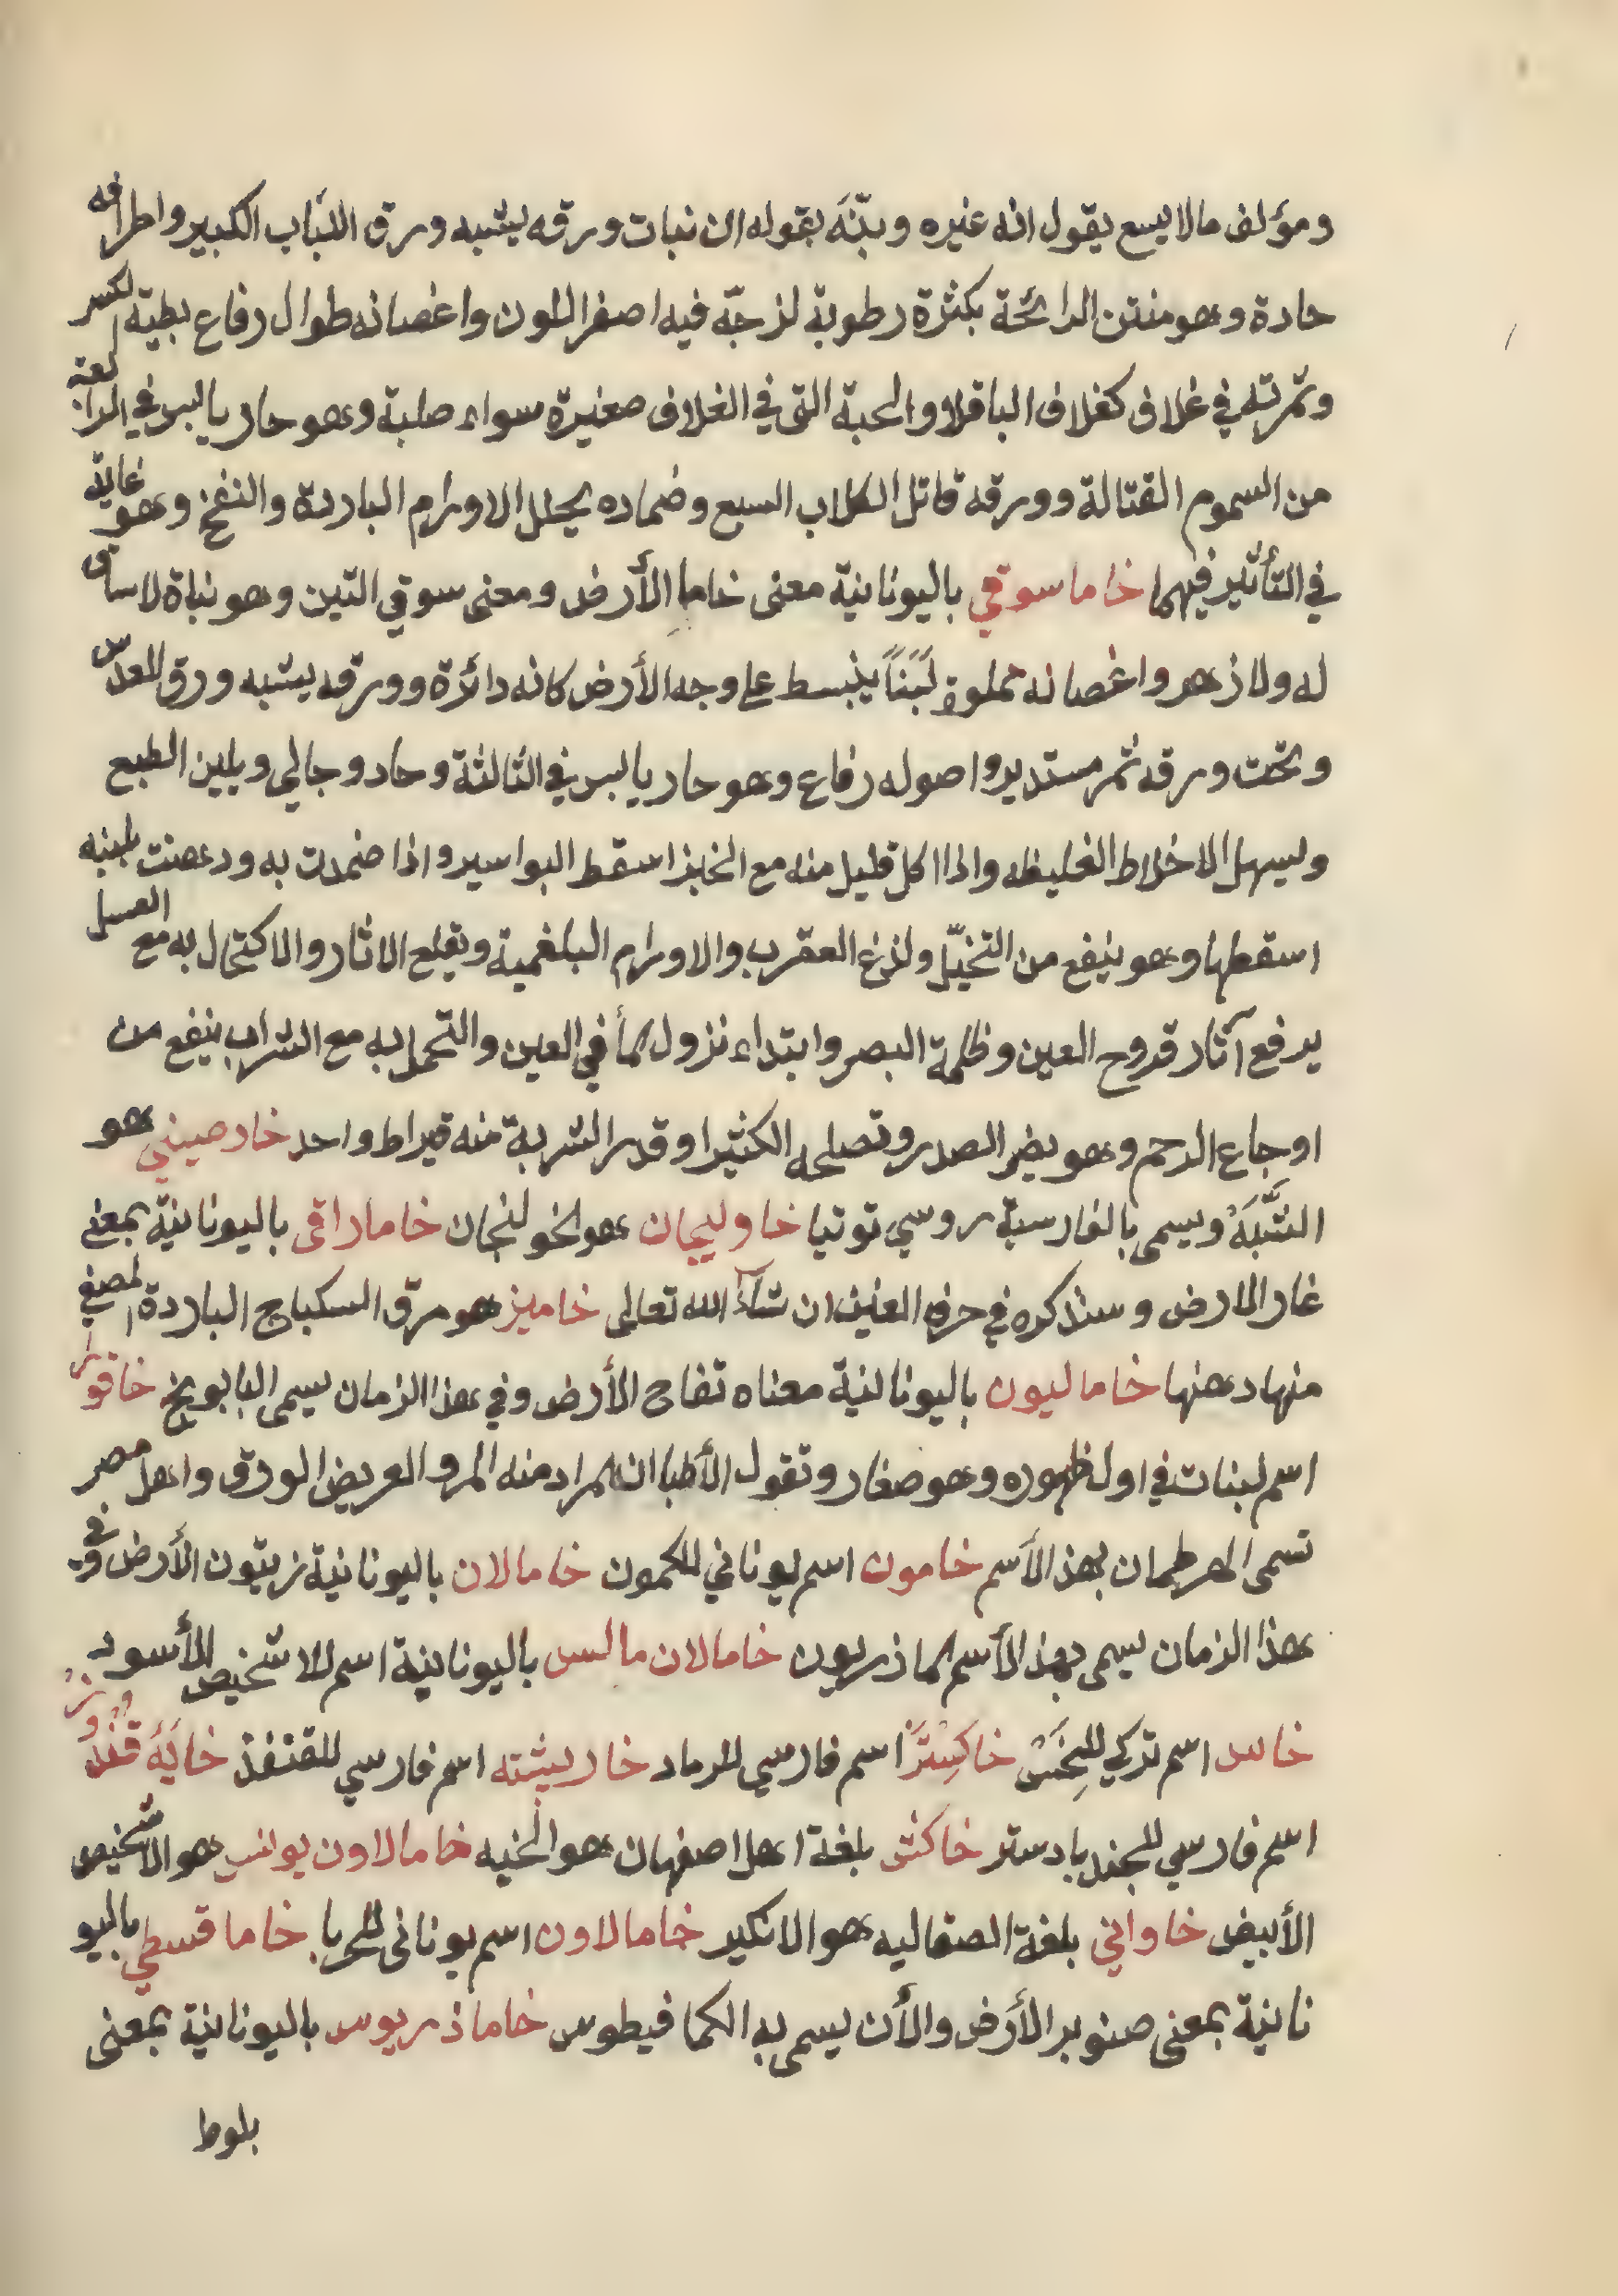 ومؤلف مالا يسع يقول انه غيره وبيّنَه بقوله ان نبات ورقه يشبه ورق اللبّاب الكبير واطرافه
حادة وهو منتن الرائحة بكثرة رطوبة لزجّة فيه اصفر اللون واغصانه طوال رفاع بطيّة الكسر
وثمرته في غلاف كغلاف الباقلا والحبة التى في الغلاف صغيرة سواء صلبة وهو حار يابس في الرابعة
من السموم القتالة وورقه قاتل الكلاب السبع وضماده يحلل الاورام الباردة والنفخ وهو غاية
في التأثير فيهما خاما سوقي باليونانيّة معنى خاما الأرض ومعنى سوقي التين وهو نباة لا ساق
له ولا زهر واغصانه مملوة لَبَنًا ينبسط على وجه الأرض كانه دائرة وورقه يشبه ورق العدس
وتحت ورقه ثمر مستدير واصوله رفاع وهو حار يابس في الثالثة وحاد وجالي ويلين الطبع
ويسهل الاخلاط الغليظه واذا اكل قليل منه مع الخبز اسقط البواسير واذا ضمدت به ودهنت بلبنه
اسقطها وهو ينفع من التخيّل ولذغ العقرب والاورام البلغمية ويقلع الاثار والاكتحال به مع العسل
يرفع آثار قروح العين وظلمة البصر وابتداء نزول المأ في العين والتحمل به مع الشراب ينفع من
اوجاع الرحم وهو يضر الصدر وتصلحه الكثيرا وقدر الشربة منه قيراط واحد خارصيني هو
الشَّبَهُ ويسمى بالفارسية روسي توتيا خاوليجان هو الخولنجان خاماراقى باليونانيّة بمعنى
غار الارض وسنذكره في حرف الغين ان شآءَ الله تعالى خاميز هو مرق السكباج الباردة المصفي
منها دهنها خاماليون باليونانية معناه تفاح الأرض وفي هذا الزمان يسمى البابوبخ خاقور
اسم لبنات في اول ظهوره وهو صغار وتقول الأطبا ان المراد منه المرو العريض الورق واهل مصر
تسمى الهرطمان بهذ الأسم خامون اسم يوناني للكمون خامالان باليونانية زيتون الأرض وفي
هذا الزمان يسمى بهذ الأسم المازريون خامالان مالس باليونانية اسم للاشخيص الأسود
خاس اسم تركي للخس خاكِسْتَرْ اسم فارسي للرماد خاريشته اسم فارسي للقنفذ خايَهَ قُنْدُوزْ
اسم فارسي للجندبادستر خاكش بلغة اهل اصفهان هو الخبه خامالاون يولس هو الاشخيص
الأبيض خاواني بلغة الصقاليه هو الانكير خامالاون اسم يونانى للحربا خاما قسطي باليو
نانية بمعنى صنوبر الأرض والأن يسمى به الكمافيطوس خاماذريوس باليونانية بمعنى
بلوط